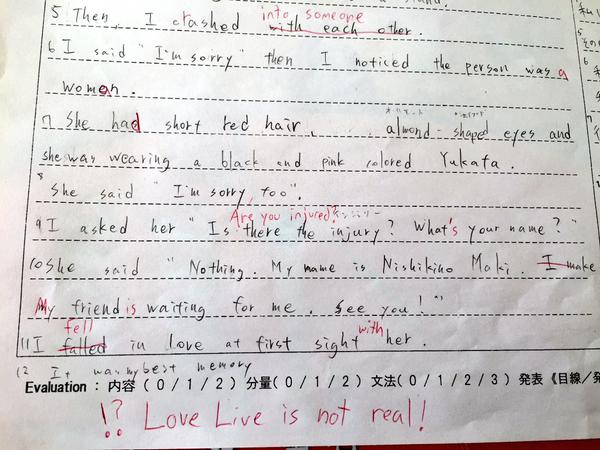 5 Then, I crashed into someone with each other.
6 I said "I'm sorry" then I noticed the person was a
woman.
7 She had short red hair, almond-shaped eyes and
she was wearing a black and pink colored Yukata.
8 She said "I'm sorry, too".
Are you injured?
9 I asked her "Is there the injury? What's your name?"
10 She said "Nothing. My name is Nishikino Maki. I make
My friend is waiting for me. See you!"
fell with
11 I falled in love at first sight her.
12 It was my best memory
Evaluation : 内容 ( 0 / 1 / 2 ) 分量( 0 / 1 / 2 ) 文法( 0 / 1 / 2 / 3 ) 発表《目線/発
!? Love Live is not real!